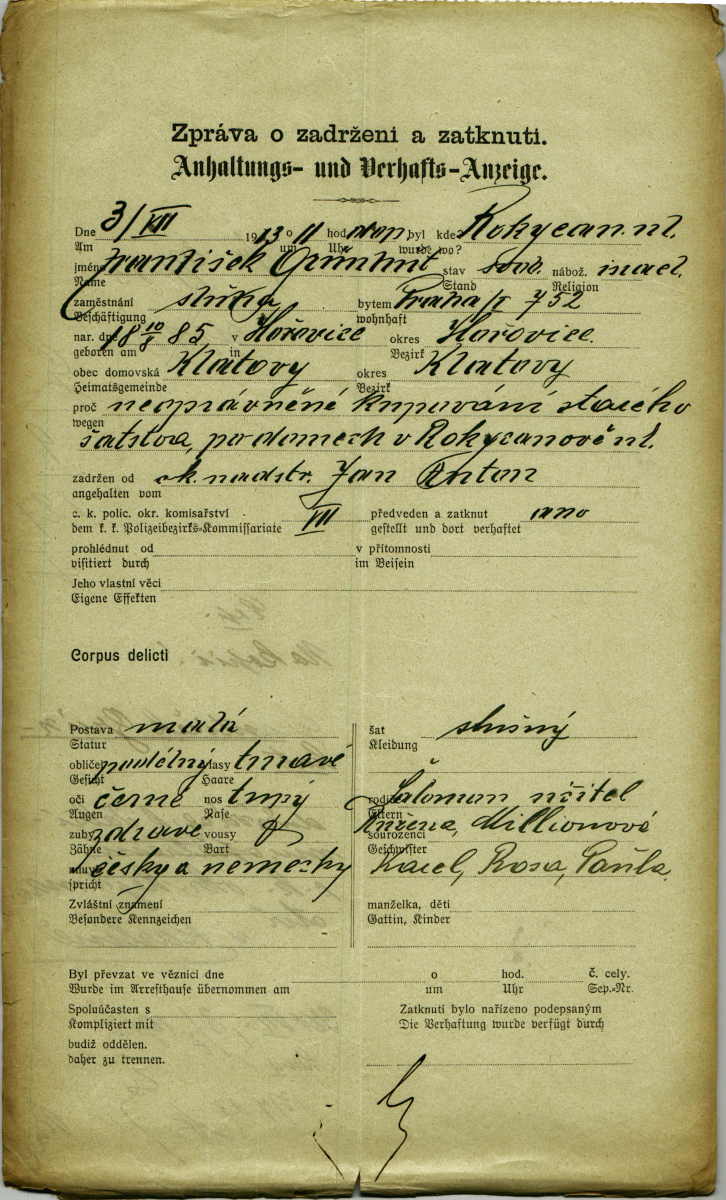 Zpráva o zadržení a zatknutí.
Anhaltungs- und Verhafts-Anzeige.
Dne 3/VII 1913 o 11 hod. dop. byl kde Rokycan. ul.
Am um Uhr wurde wo?
jméno František Grünhut stav svob. nábož. israel.
Name Stand Religion
zaměstnání sluha bytem Praha/I 752
Beschäftigung wohnhaft
nar. dne 18 10/8 85, v Hořovice okres Hořovice.
geboren am in Bezirk
obec domovská Klatovy okres Klatovy
Heimatsgemeinde Bezirk
proč neoprávněné kupování starého
wegen
šatstva, po domech v Rokycanově ul.
zadržen od ck. nadstr. Jan Anton
angehalten vom
c. k. polic. okr. komisařství VII předveden a zatknut ano
dem k. k. Polizeibezirks-Kommissariate gestellt und dort verhaftet
prohlédnut od v přítomnosti
visitiert durch im Beisein
Jeho vlastní věci
Eigene Effekten
Corpus delicti
Postava malá šat slušný
Statur Kleidung
obličej podélný vlasy tmavé
Gesicht Haare
oči černé nos tupý rodiče Šalomun učitel
Augen Nase Eltern
zuby zdravé vousy sourozenci Millionová
Zähne Bart Geschwister
mluví česky a německy Karel, Rosa, Pavla.
spricht
Zvláštní znamení manželka, děti
Besondere Kennzeichen Gattin, Kinder
Byl převzat ve věznici dne o hod. č. cely.
Wurde im Arresthause übernommen am um Uhr Sep.-Nr.
Spoluúčasten s Zatknutí bylo nařízeno podepsaným
Kompliziert mit Die Verhaftung wurde verfügt durch
budiž oddělen.
daher zu trennen.